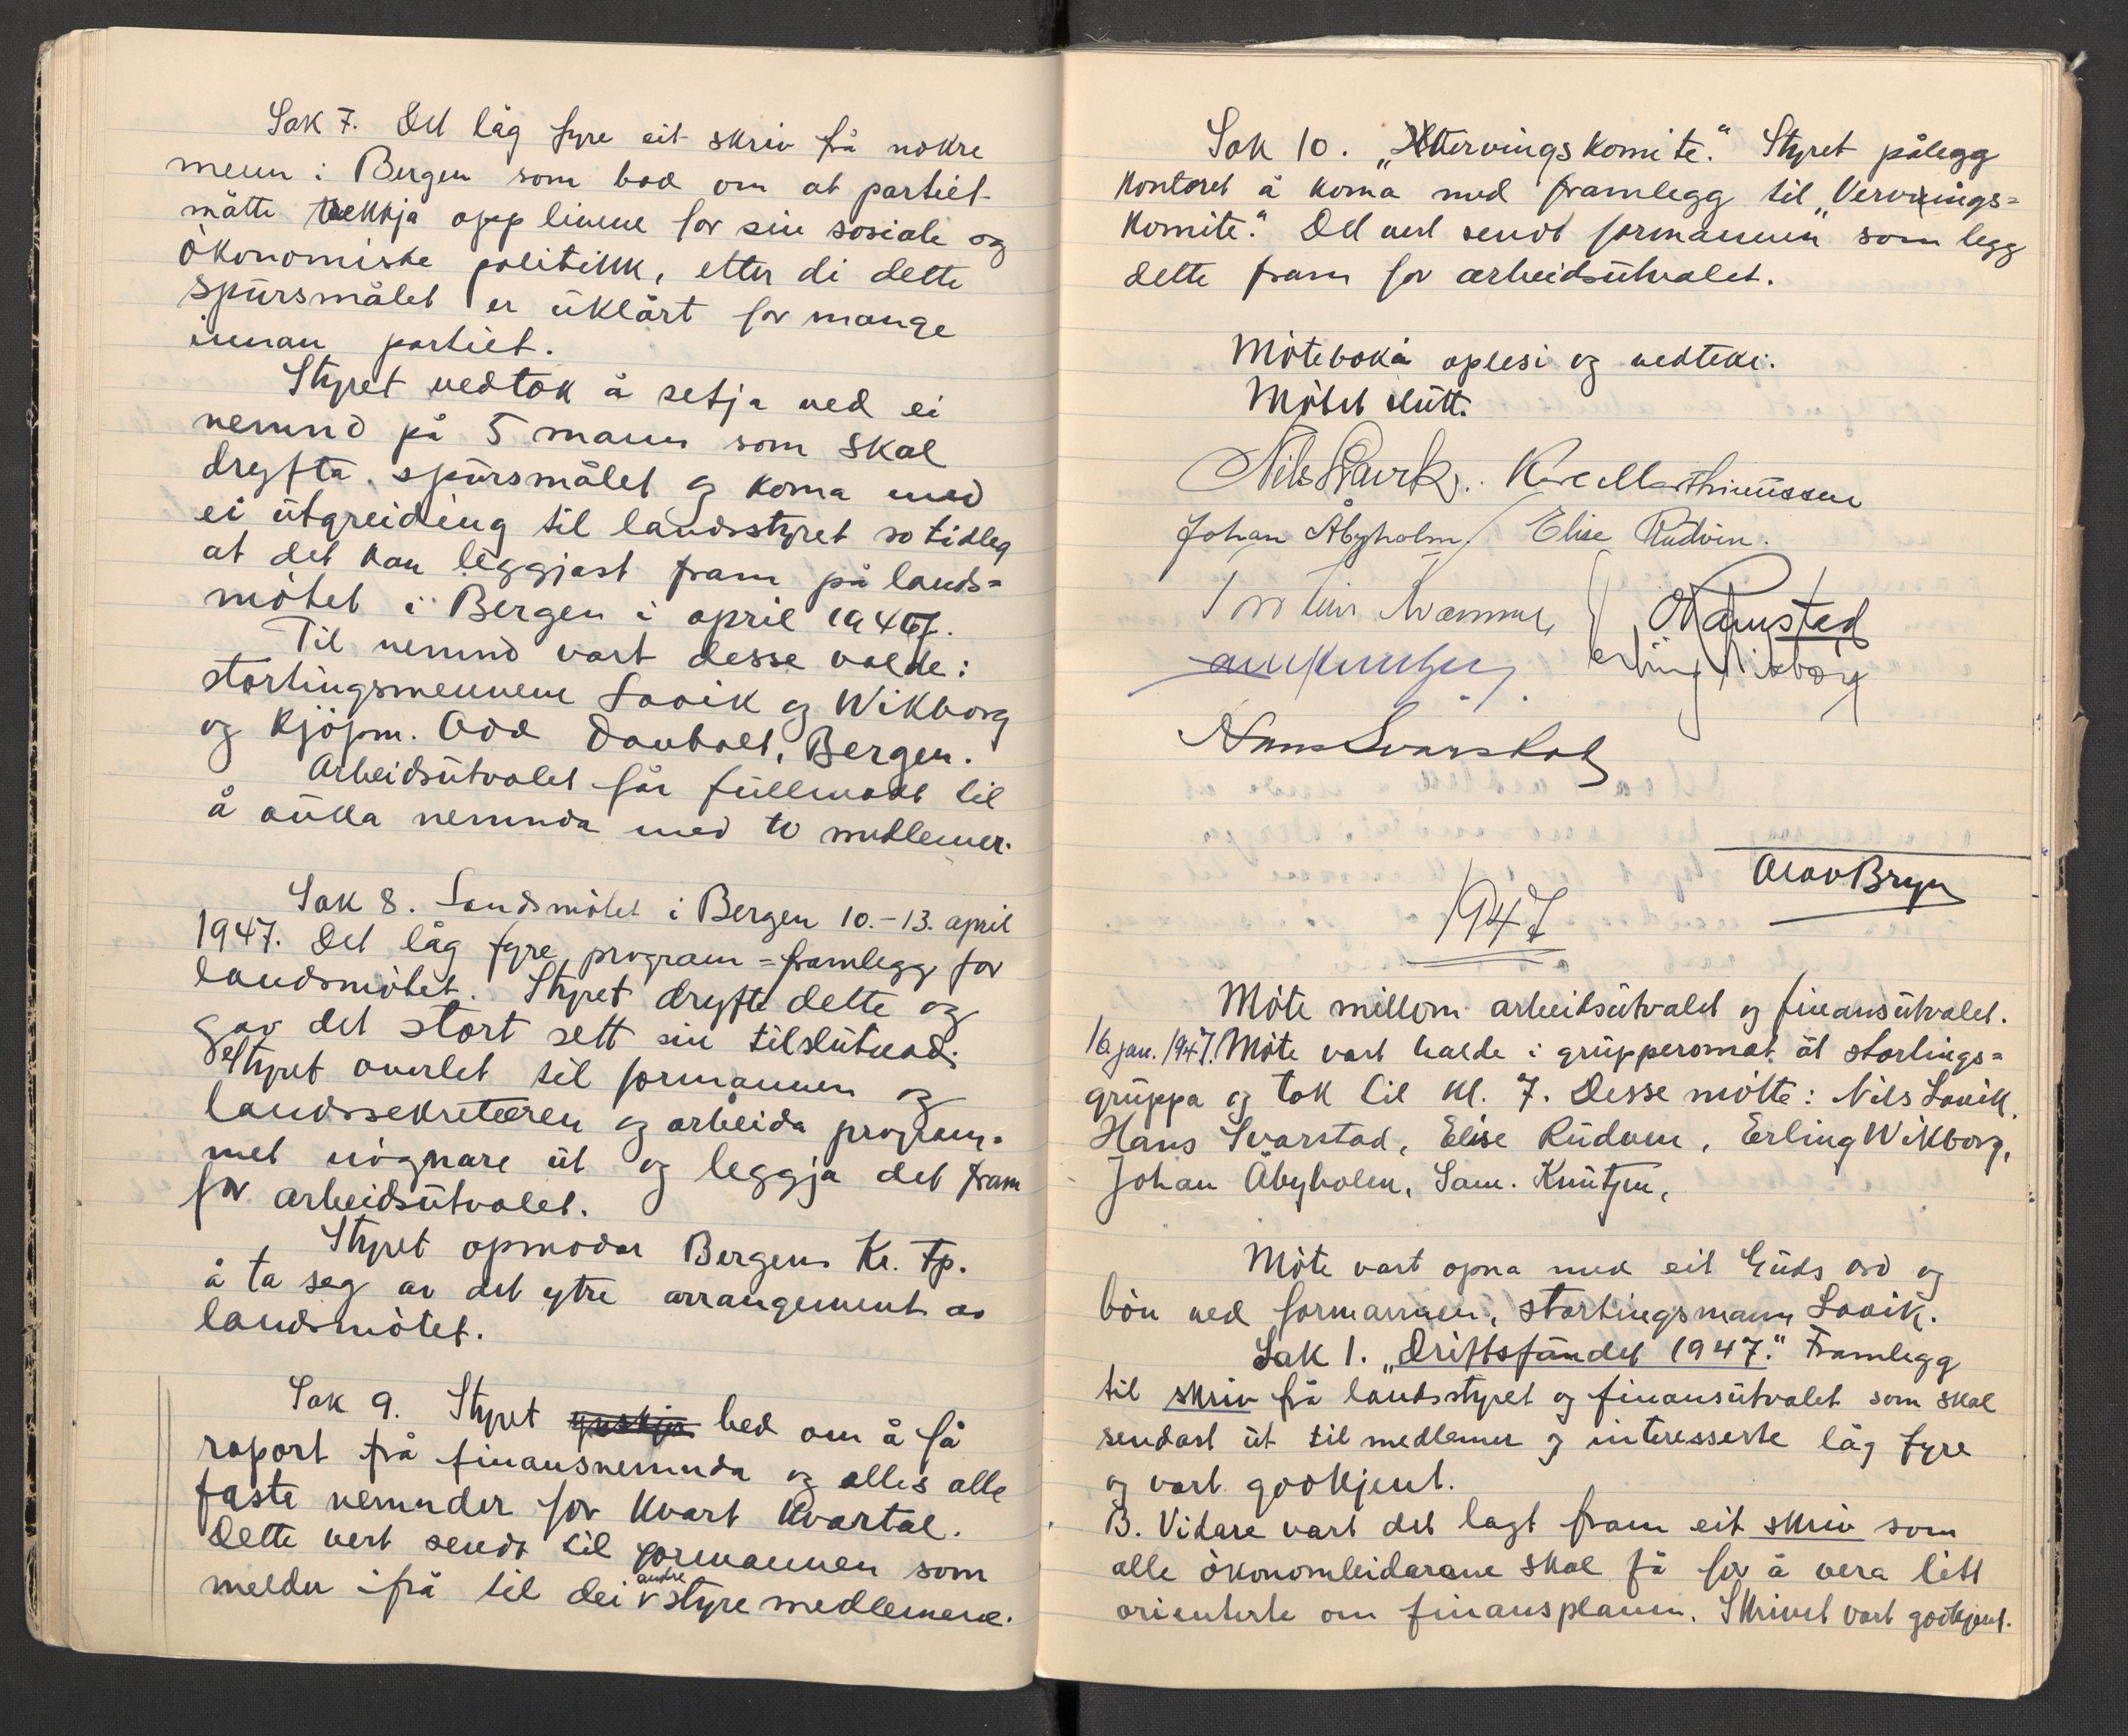 Sak 7. Det låg fyre eit skriv frå nokre
menn i Bergen som bad om at partiet
måtte trekkja opp linene for sin sosiale og
ökonomiske politikk, etter di dette
spursmålet er uklårt for mange
innan partiet.
Styret vedtok å setja ned ei
nemnd på 5 mann som skal
dryfta spursmålet og koma med
ei utgreiding til landsstyret so tidleg
at det kan leggjast fram på lands=
mötet i Bergen i april 1947.
Til nemnd vart desse valde:
stortingsmennene Lavik og Wikborg
og kjöpm. Odd Danbolt, Bergen.
Arbeidsutvalet får fullmakt til
å aulla nemnda med to medlemer.
Sak 8. Landsmötet i Bergen 10.-13. april
1947. Det låg fyre program=framlegg for
landsmötet. Styret dryfte dette og
gav det stort sett sin tilslutnad.
Styret overlet til formannen og
landssekretæren og arbeida program=
met nögnare ut og leggja det fram
for arbeidsutvalet.
Styret opmodar Bergens Kr. Fp.
å ta seg av det ytre arrangement av
landsmötet.
Sak 9. Styret ynskjer bed om å få
raport frå finansnemnda og elles alle
faste nemnder for kvart kvartal.
Dette vert sendt til formannen som
andre
melder ifrå til dei v styremedlemene.
Sak 10. „Vervingskomite.“ Styret pålegg
kontoret å koma med framlegg til „Vervings=
komite.“ Det vert sendt formannen som legg
dette fram for arbeidsutvalet.
Möteboka oplesi og vedteki.
Mötet slutt.
Nils Lavik. Kåre Marthinussen
Johan Åbyholm. Elise Rudvin.
O. Ramstad
Erling Wikborg
Hans Svarstad
Olav Bryn
1947
Möte millom arbeidsutvalet og finansutvalet.
16. jan. 1947. Möte vart halde i grupperomat åt stortings=
gruppa og tok til kl. 7. Desse mötte: Nils Lavik,
Hans Svarstad, Elise Rudven, Erling Wikborg,
Johan Åbyholm, Sam. Knutzen,
Möte vart opna med eit Guds ord og
bön ved formannen, stortingsmann Lavik.
Sak 1. „Driftsfondet 1947.“ Framlegg
til skriv frå landsstyret og finansutvalet som skal
sendast ut til medlemer og interesserte låg fyre
og vart godkjent.
B. Vidare vart det lagt fram eit skriv som
alle ökonomleidarane skal få for å vera litt
orienterte om finansplanen. Skrivet vart godkjent.